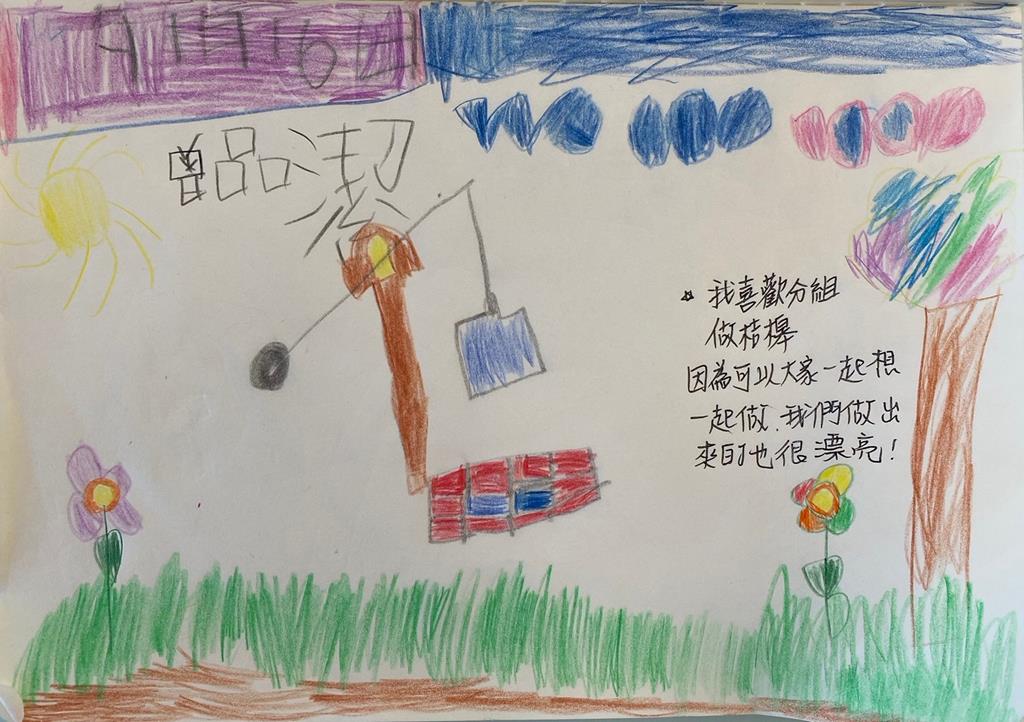 4月16日
曾品潔
☆ 我喜歡分組
做桔槔
因為可以大家一起想
一起做、我們做出
來的也很漂亮!